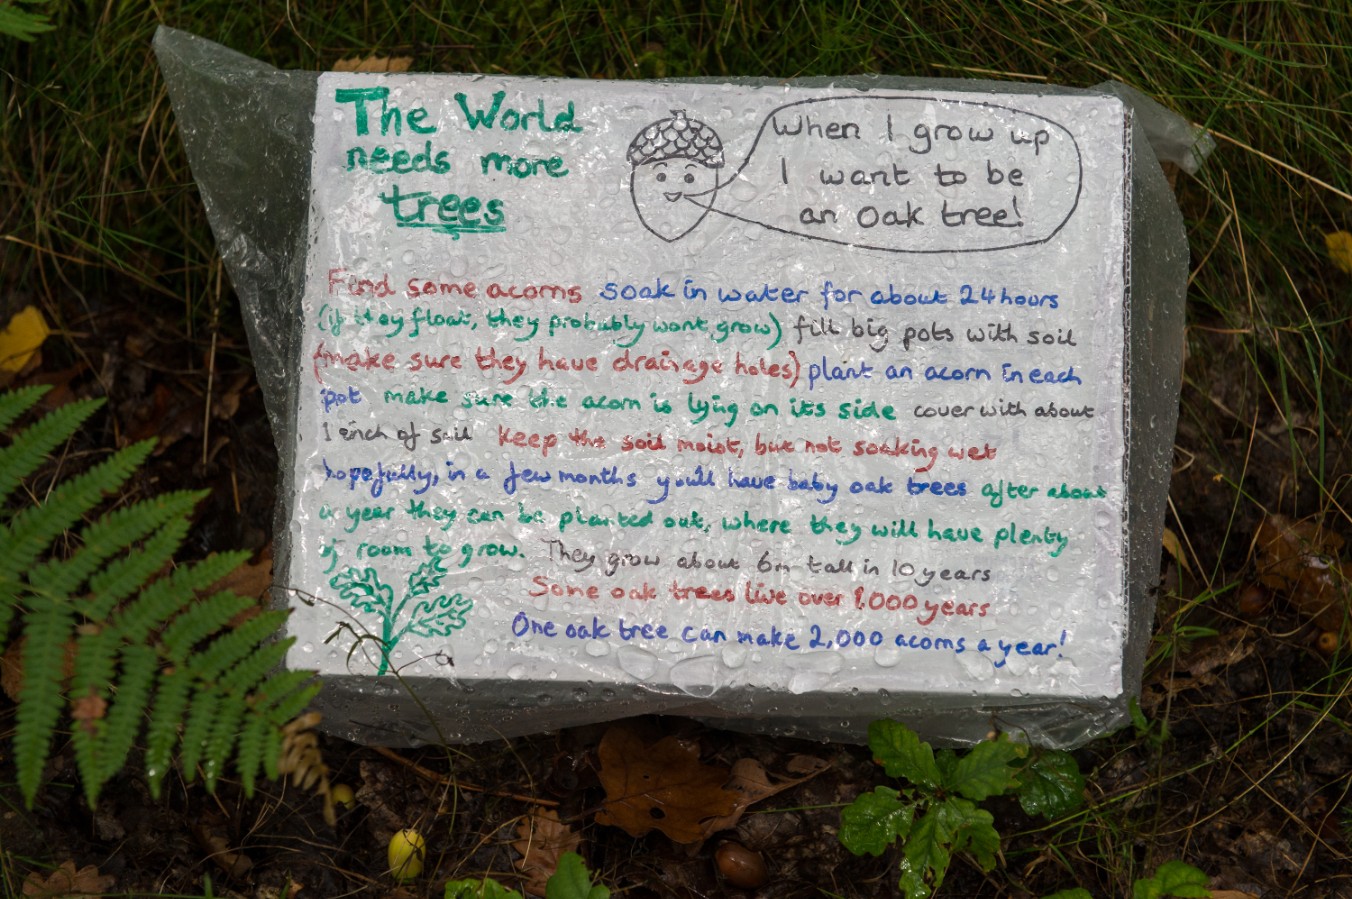 The World
needs more
trees
When I grow up
I want to be
an oak tree!
Find some acorns soak in water for about 24 hours
(if they float, they probably wont grow) fill big pots with soil
(make sure they have drainage holes) plant an acorn in each
pot make sure the acorn is lying on its side cover with about
1 inch of soil Keep the soil moist, but not soaking wet
hopefully, in a few months you'll have baby oak trees after about
a year they can be planted out, where they will have plenty
of room to grow. They grow about 6m tall in 10 years
Some oak trees live over 1,000 years
One oak tree can make 2,000 acorns a year!